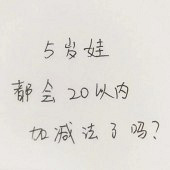 5岁娃
都会20以内
加减法了吗?